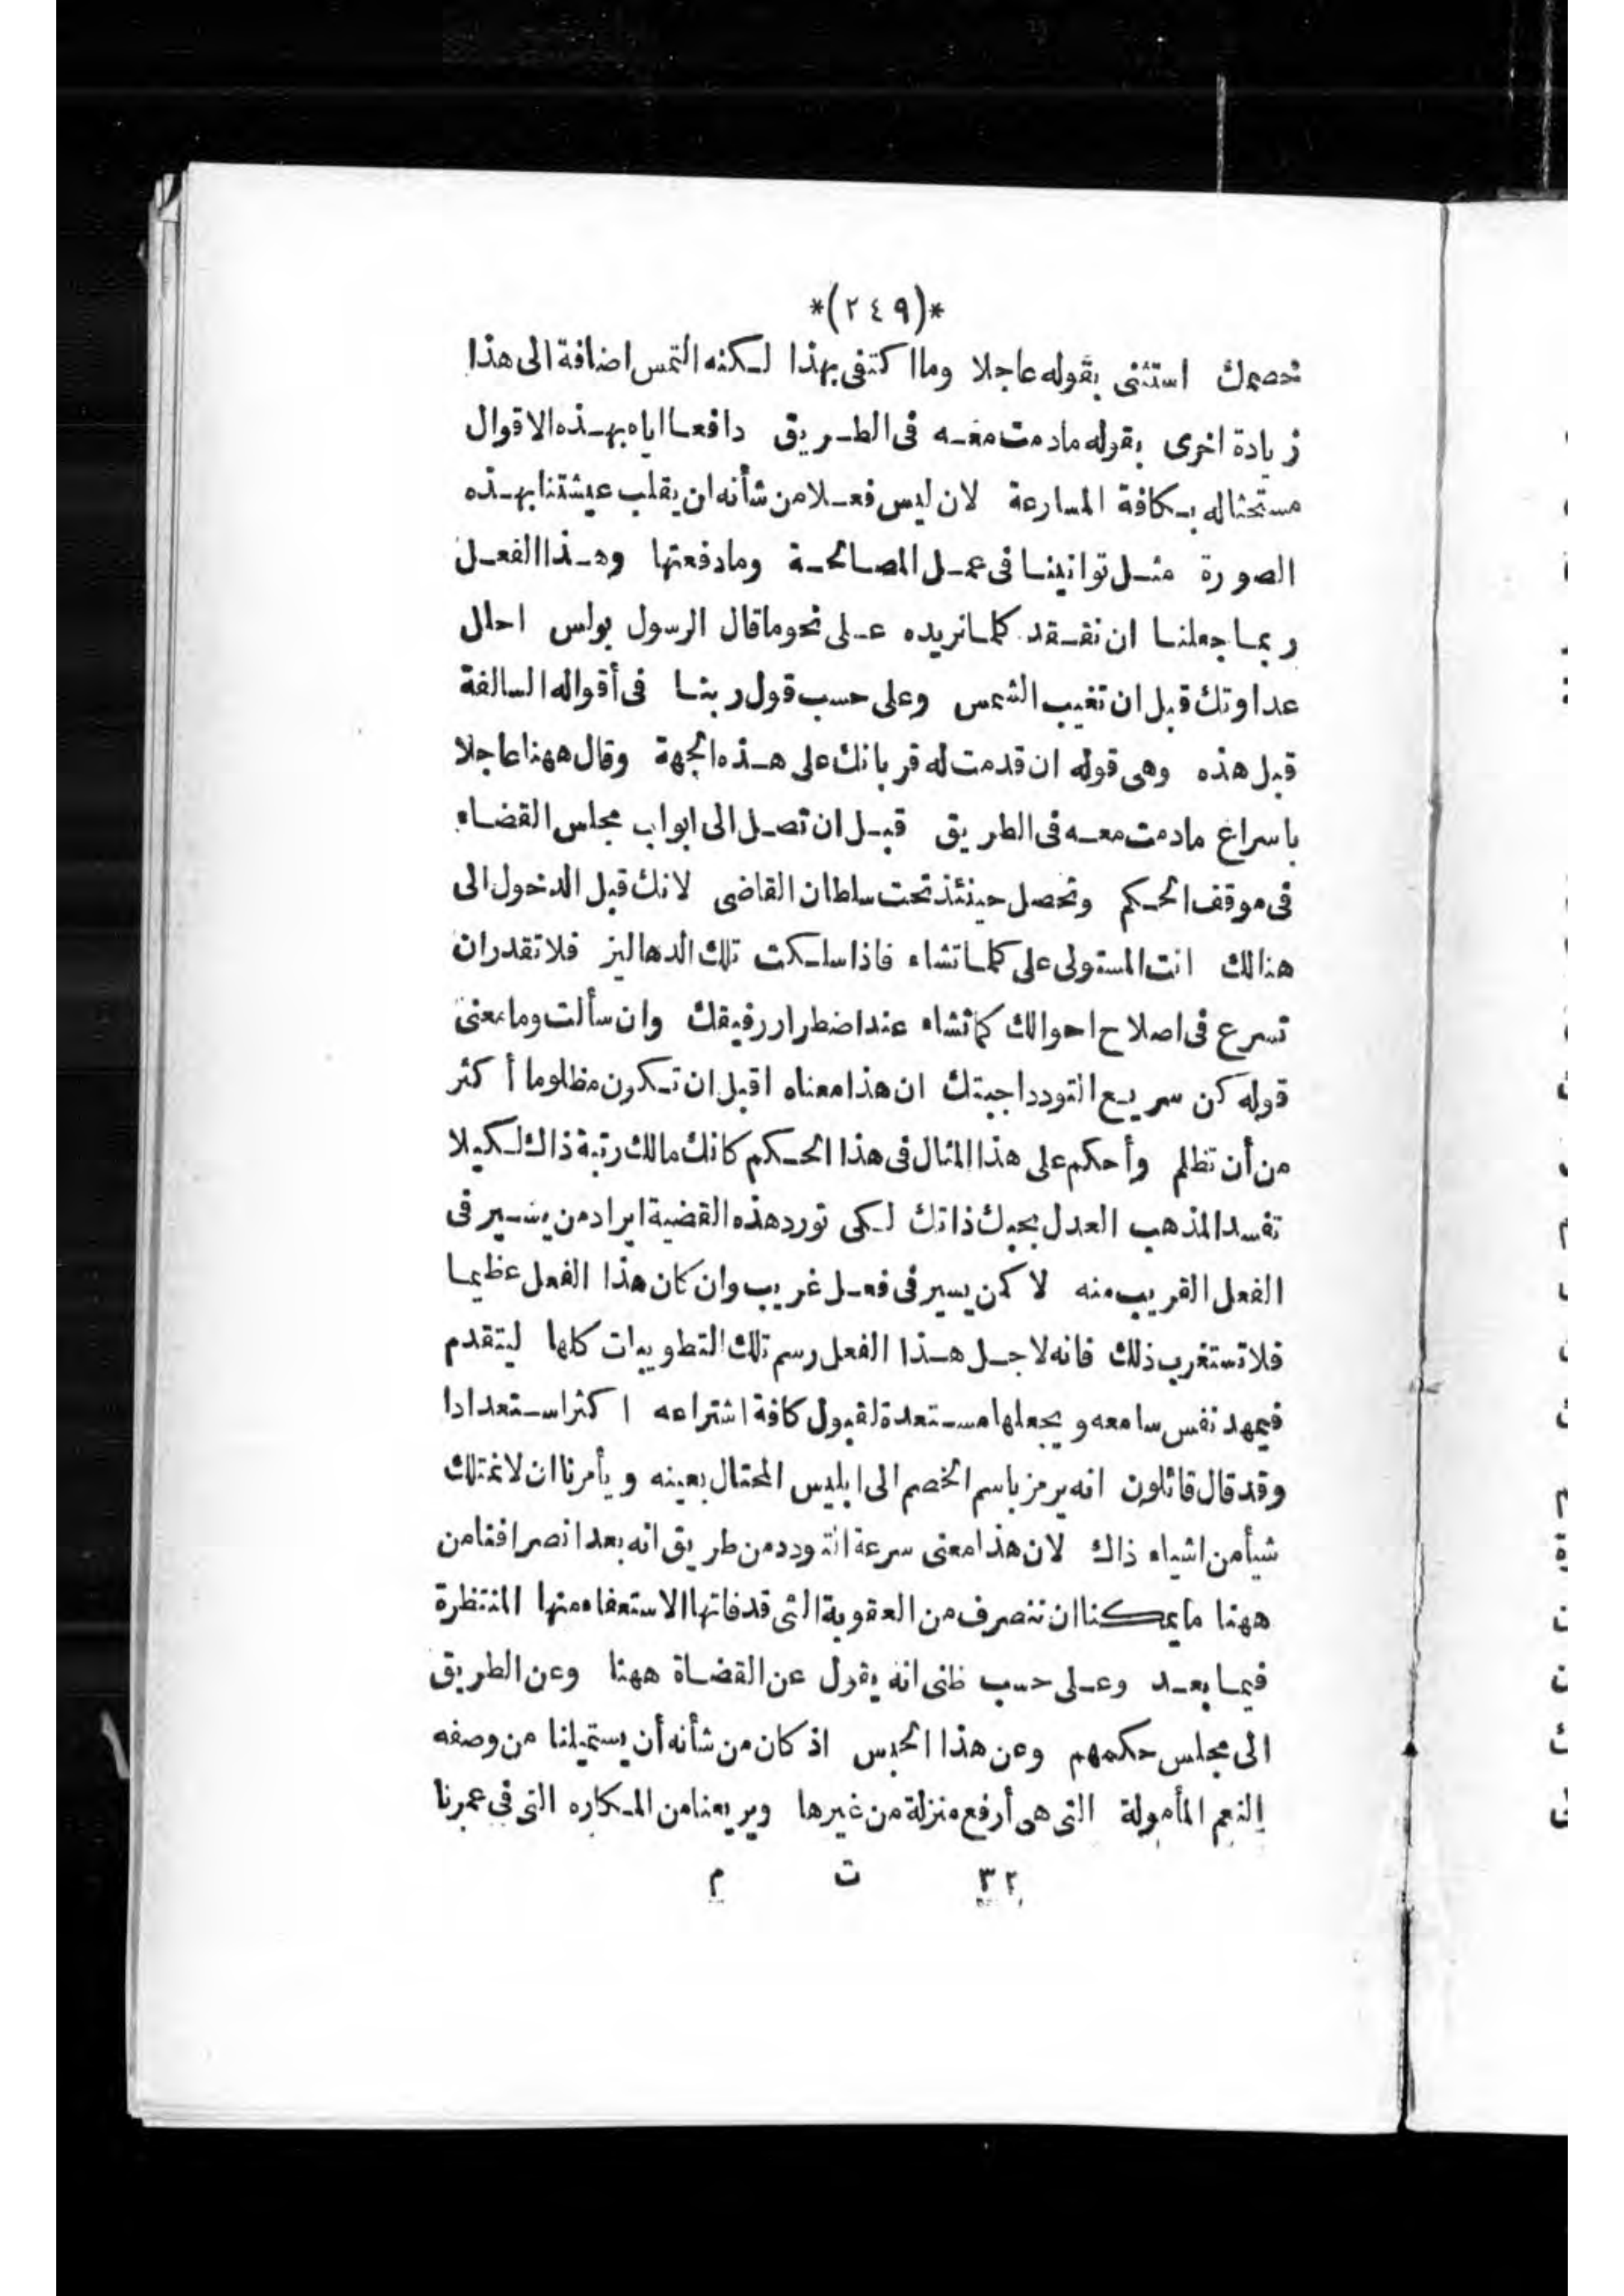 *(٢٤٩)*
لخصمك استثنى بقوله عاجلا وما اكتفى بهذا لكنه التمس اضافة الى هذا
زيادة اخرى بقوله مادمت معه فى الطريق دافعا اياه بهذه الاقوال
مستحثا له بكافة المسارعة لان ليس فعلا من شأنه ان يقلب عيشتنا بهذه
الصورة مثل توانينا فى عمل المصالحة ومادفعتها وهذا الفعل
ربما جعلنا ان نفقد كلما نريده على نحو ما قال الرسول بولس احلل
عداوتك قبل ان تغيب الشمس وعلى حسب قول ربنا فى أقواله السالفة
قبل هذه وهى قوله ان قدمت له قربانك على هذه الجهة وقال ههنا عاجلا
باسراع مادمت معه فى الطريق قبل ان تصل الى ابواب مجلس القضاء
فى موقف الحكم وتحصل حينئذ تحت سلطان القاضى لانك قبل الدخول الى
هنالك انت المستولى على كلما تشاء فاذا سلكت تلك الدهاليز فلا تقدر ان
تسرع فى اصلاح احوالك كما تشاء عند اضطرار رفيقك وان سألت وما معنى
قوله كن سريع التودد اجبتك ان هذا معناه اقبل ان تكون مظلوما أكثر
من أن تظلم وأحكم على هذا المثال فى هذا الحكم كانك مالك رتبة ذاك لكيلا
تفسد المذهب العدل بحبك ذاتك لكى تورد هذه القضية ايراد من يشير فى
الفعل القريب منه لا كمن يسير فى فعل غريب وان كان هذا الفعل عظيما
فلا تستغرب ذلك فانه لاجل هذا الفعل رسم تلك التطويبات كلها ليتقدم
فيمهد نفس سامعه ويجعلها مستعدة لقبول كافة اشتراعه اكثر استعدادا
وقد قال قائلون انه يرمز باسم الخصم الى ابليس المحتال بعينه ويأمرنا ان لا نمتلك
شيأ من اشياء ذاك لان هذا معنى سرعة التودد من طريق انه بعد انصرافنا من
ههنا ما يمكننا ان ننصرف من العقوبة التى قد فاتها الاستعفاء منها المنتظرة
فيما بعد وعلى حسب ظنى انه يقول عن القضاة ههنا وعن الطريق
الى مجلس حكمهم وعن هذا الحبس اذ كان من شأنه أن يستميلنا من وصفه
النعم المأمولة التى هى أرفع منزلة من غيرها ويريعنا من المكاره التى فى عمرنا
٣٢ ت م